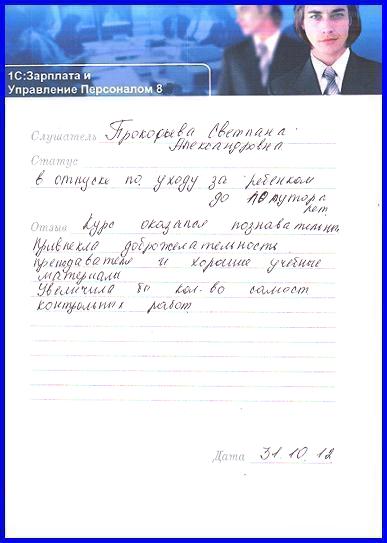 1С:Зарплата и
Управление Персоналом 8
Слушатель Прокофьева Светлана
Александровна
Статус
в отпуске по уходу за ребенком
до полутора
лет
Отзыв Курс оказался познавательным
Привлекла доброжелательность
преподавателя и хорошие учебные
материалы
Увеличила бы кол-во самост
контрольных работ
Дата 31.10.12